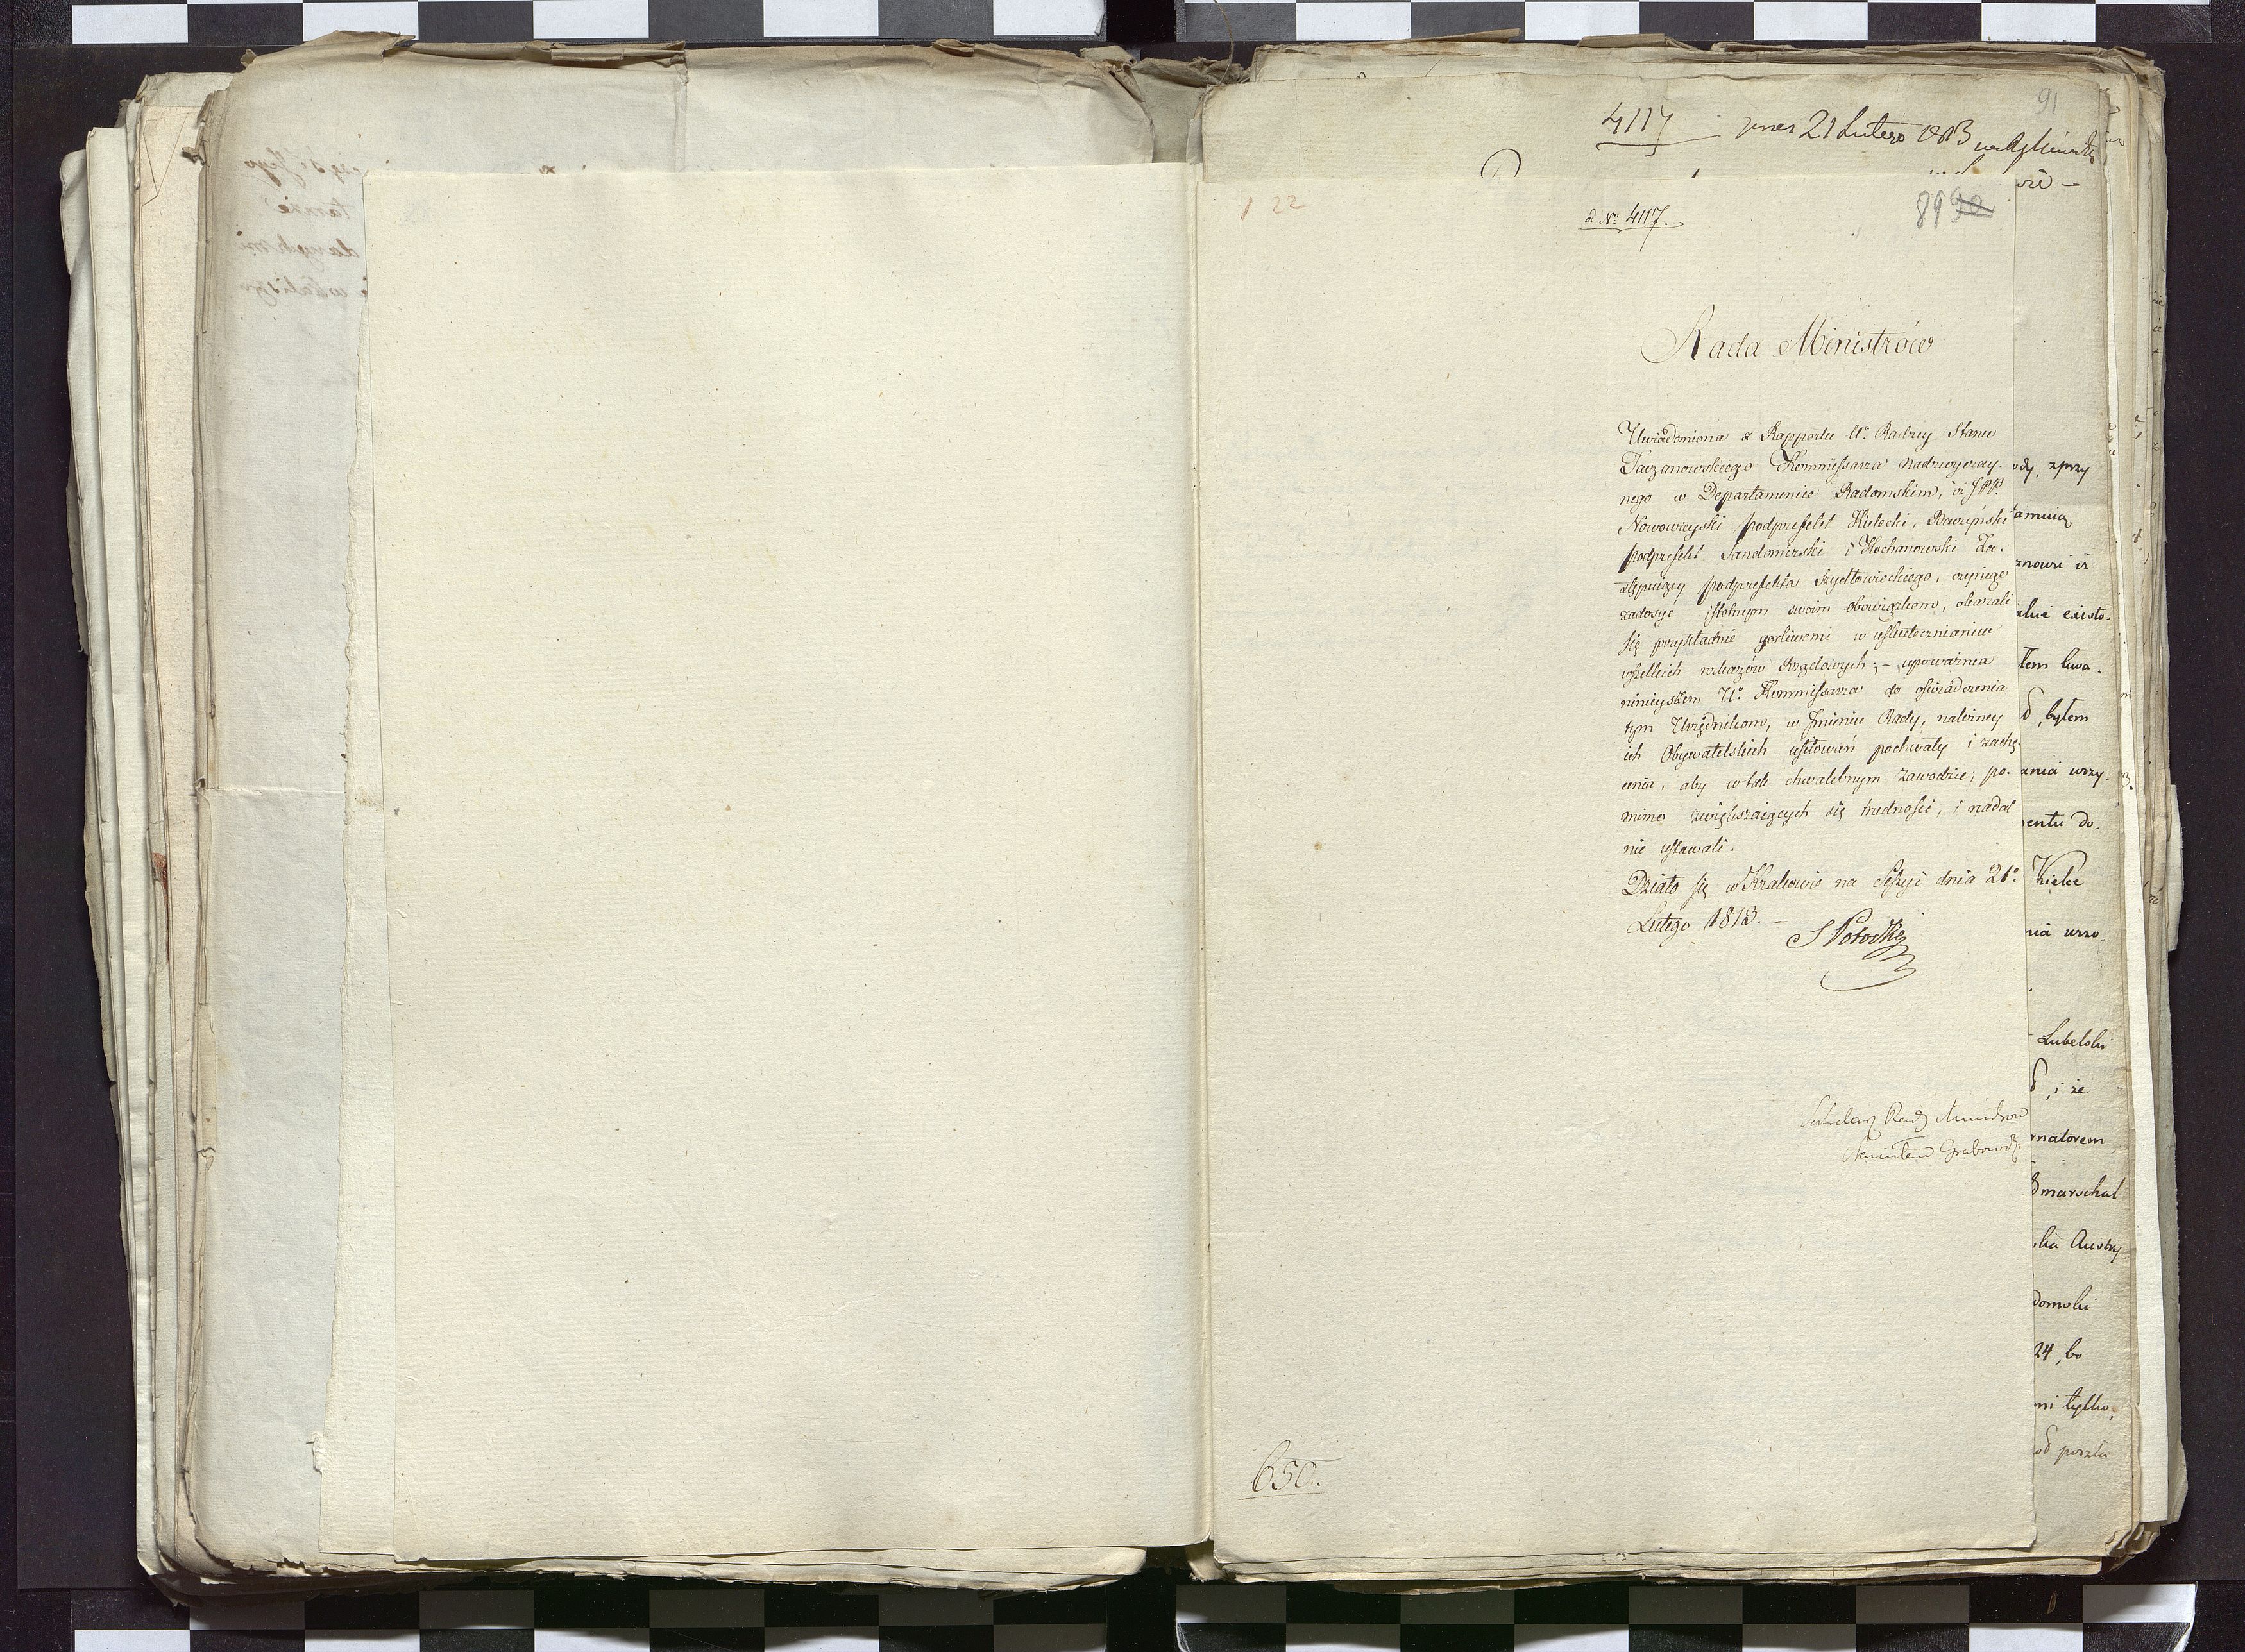 91
4117 21 Lutego 1813
1 22
ad Nr 4117.
89 90
Rada Ministrów
Uwiadomiona z Rapportu Ur. Radzcy Stanu
Taczanowskiego Kommissarza Nadzwyczay-
nego w Departamencie Radomskim, iż JPP.
Nowowieyski podprefekt Kielecki, Raczyński
podprefekt Sandomirski i Kochanowski Za-
stępuiący podprefekta Szydłowieckiego, czyniąc
zadosyć istotnym swoim obowiązkom, okazali
się przykładnie gorliwemi w uskutecznianiu
wszelkich rozkazów Rządowych; – upoważnia
ninieyszem Ur. Kommissarza do oświadczenia
tym Urzędnikom, w Jmieniu Rady, należney
ich Obywatelskich usiłowań pochwały i zachę-
cenia, aby w tak chwalebnym zawodzie, po-
mimo zwiększaiących się trudności, i nadal
nie ustawali.
Działo się w Krakowie na Sessyi dnia 21o
Lutego 1813. –
S Potocki
Sekretarz Rady Ministrów
Stanisław Grabowski
650.
ody, zprzy
znowi iż
alnie exysto-
tem kwa-
d, byłem
ania wszy-
entu do-
Kielce
nia wszo-
Lubelski
d, i że
rnatorem
dmarschal
ska Austry-
domski
24, bo
mi tylko,
od poszła